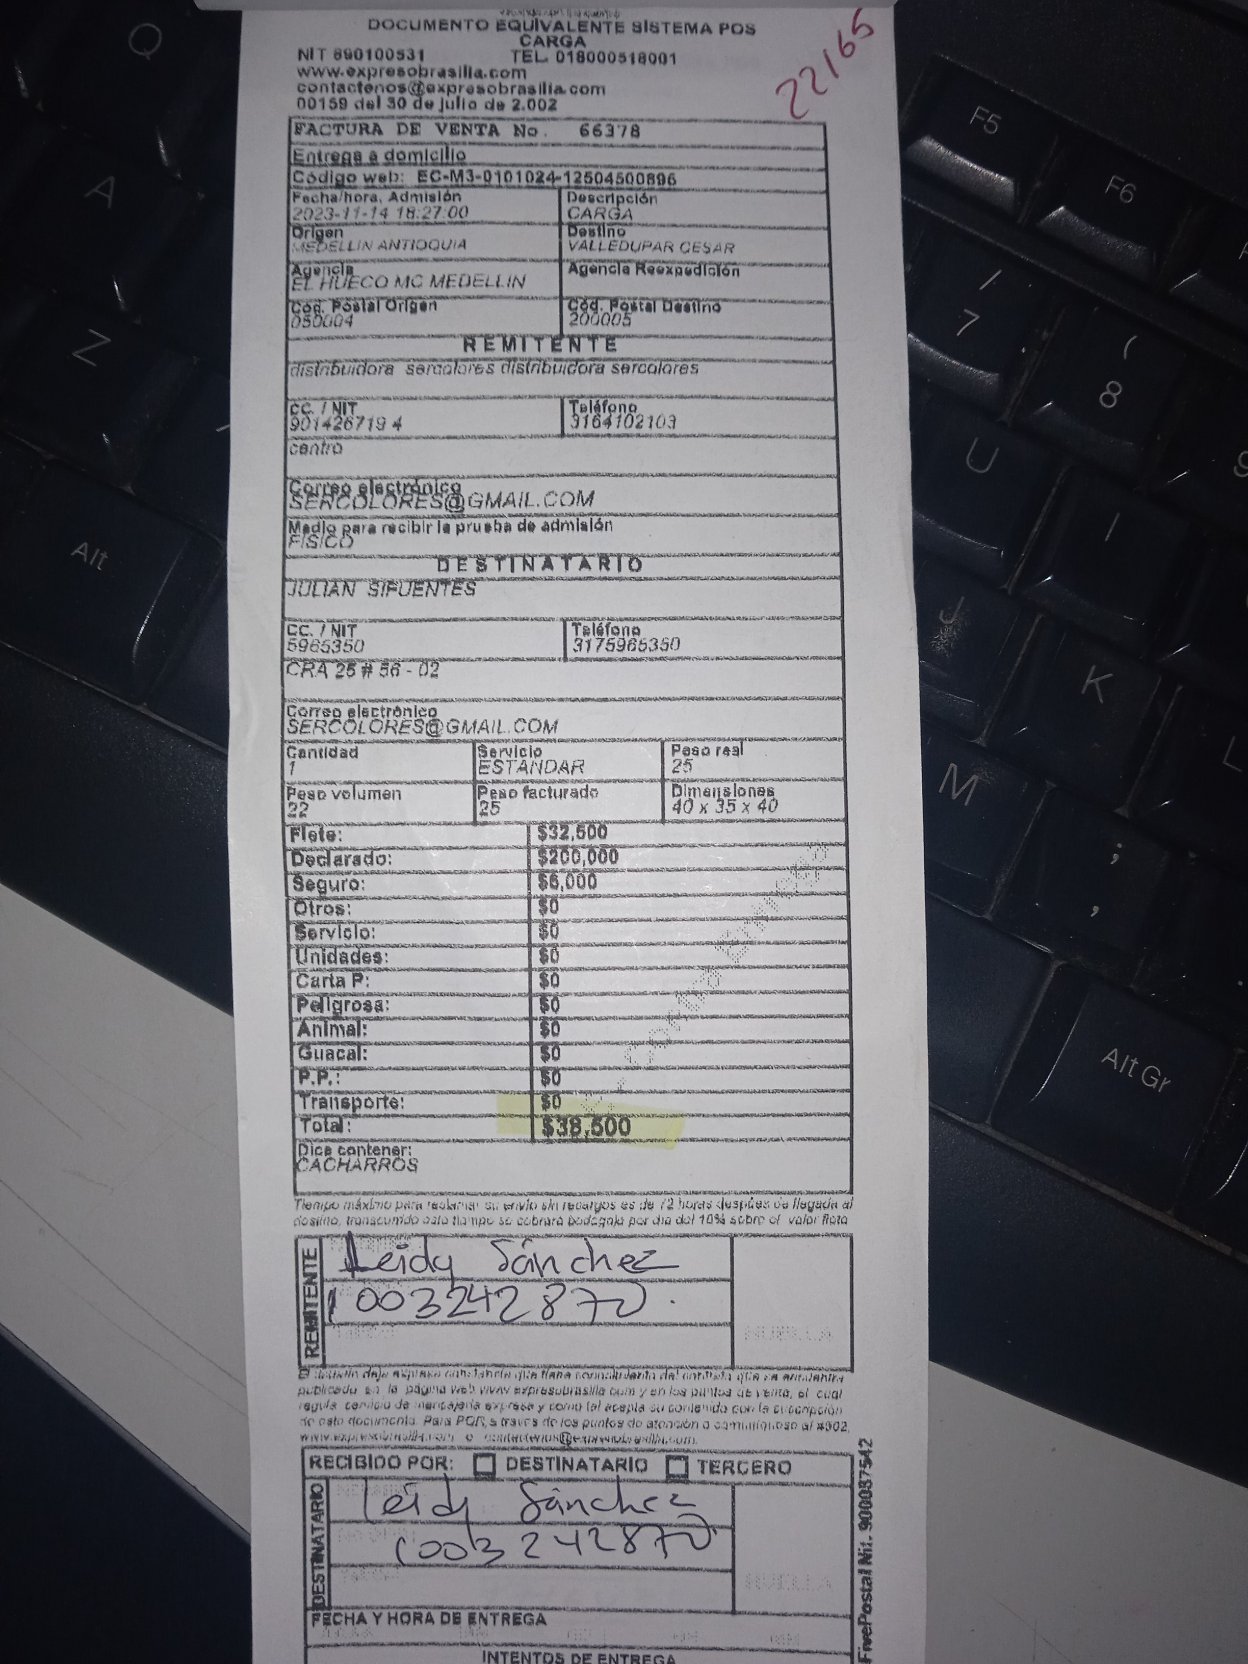 DOCUMENTO EQUIVALENTE SISTEMA POS
CARGA
NIT 890100531 TEL. 018000518001
www.expresobrasilia.com
contactenos@expresobrasilia.com
00159 del 30 de julio de 2.002
22165
FACTURA DE VENTA No. 66378
Entrega a domicilio
Código web: EC-M3-0101024-12504500896
Fecha/hora, Admisión Descripción
2023-11-14 18:27:00 CARGA
Origen Destino
MEDELLIN ANTIOQUIA VALLEDUPAR CESAR
Agencia Agencia Reexpedición
EL HUECO MC MEDELLIN
Cód. Postal Origen Cód. Postal Destino
050004 200005
REMITENTE
distribuidora sercolores distribuidora sercolores
CC. / NIT Teléfono
901426719 4 3164102103
centro
Correo electrónico
SERCOLORES@GMAIL.COM
Medio para recibir la prueba de admisión
FISICO
DESTINATARIO
JULIAN SIFUENTES
CC. / NIT Teléfono
5965350 3175965350
CRA 25 # 56 - 02
Correo electrónico
SERCOLORES@GMAIL.COM
Cantidad Servicio Peso real
1 ESTANDAR 25
Peso volumen Peso facturado Dimensiones
22 25 40 x 35 x 40
Flete: $32,500
Declarado: $200,000
Seguro: $6,000
Otros: $0
Servicio: $0
Unidades: $0
Carta P: $0
Peligrosa: $0
Animal: $0
Guacal: $0
P.P.: $0
Transporte: $0
Total: $38,500
Contra Entrega
Dice contener:
CACHARROS
Tiempo máximo para reclamar su envío sin recargos es de 72 horas después de llegada al
destino, transcurrido este tiempo se cobrará bodegaje por día del 10% sobre el valor flete
REMITENTE
Leidy Sánchez
1003242870
HUELLA
El usuario deja expresa constancia que tiene conocimiento del contrato que se encuentra
publicado en la página web www.expresobrasilia.com y en los puntos de venta, el cual
regula servicio de mensajería expresa y como tal acepta su contenido con la suscripción
de este documento. Para PQR, a través de los puntos de atención o comuníquese al #302,
www.expresobrasilia.com o contactenos@expresobrasilia.com.
RECIBIDO POR: DESTINATARIO TERCERO
DESTINATARIO
Leidy Sánchez
1003242870
HUELLA
FECHA Y HORA DE ENTREGA
INTENTOS DE ENTREGA
FivePostal Nit. 900037542
Q
A
Z
Alt
F5
F6
/
7
(
8
9
U
I
J
K
L
M
;
,
Alt Gr